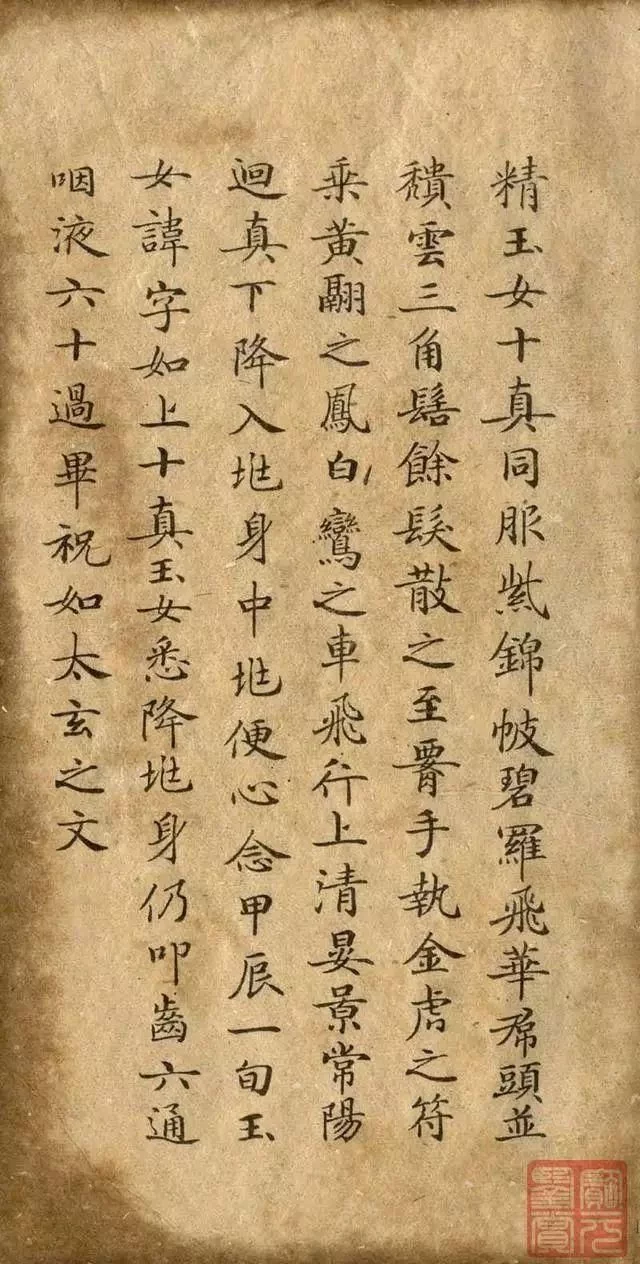 精玉女十真同服紫錦帔碧羅飛華帬頭並
穨雲三角髻餘髮散之至腰手執金虎之符
乗黃翮之鳳白鸞之車飛行上清晏景常陽
迴真下降入兆身中兆便心念甲辰一旬玉
女諱字如上十真玉女悉降兆身仍叩齒六通
咽液六十過畢祝如太玄之文